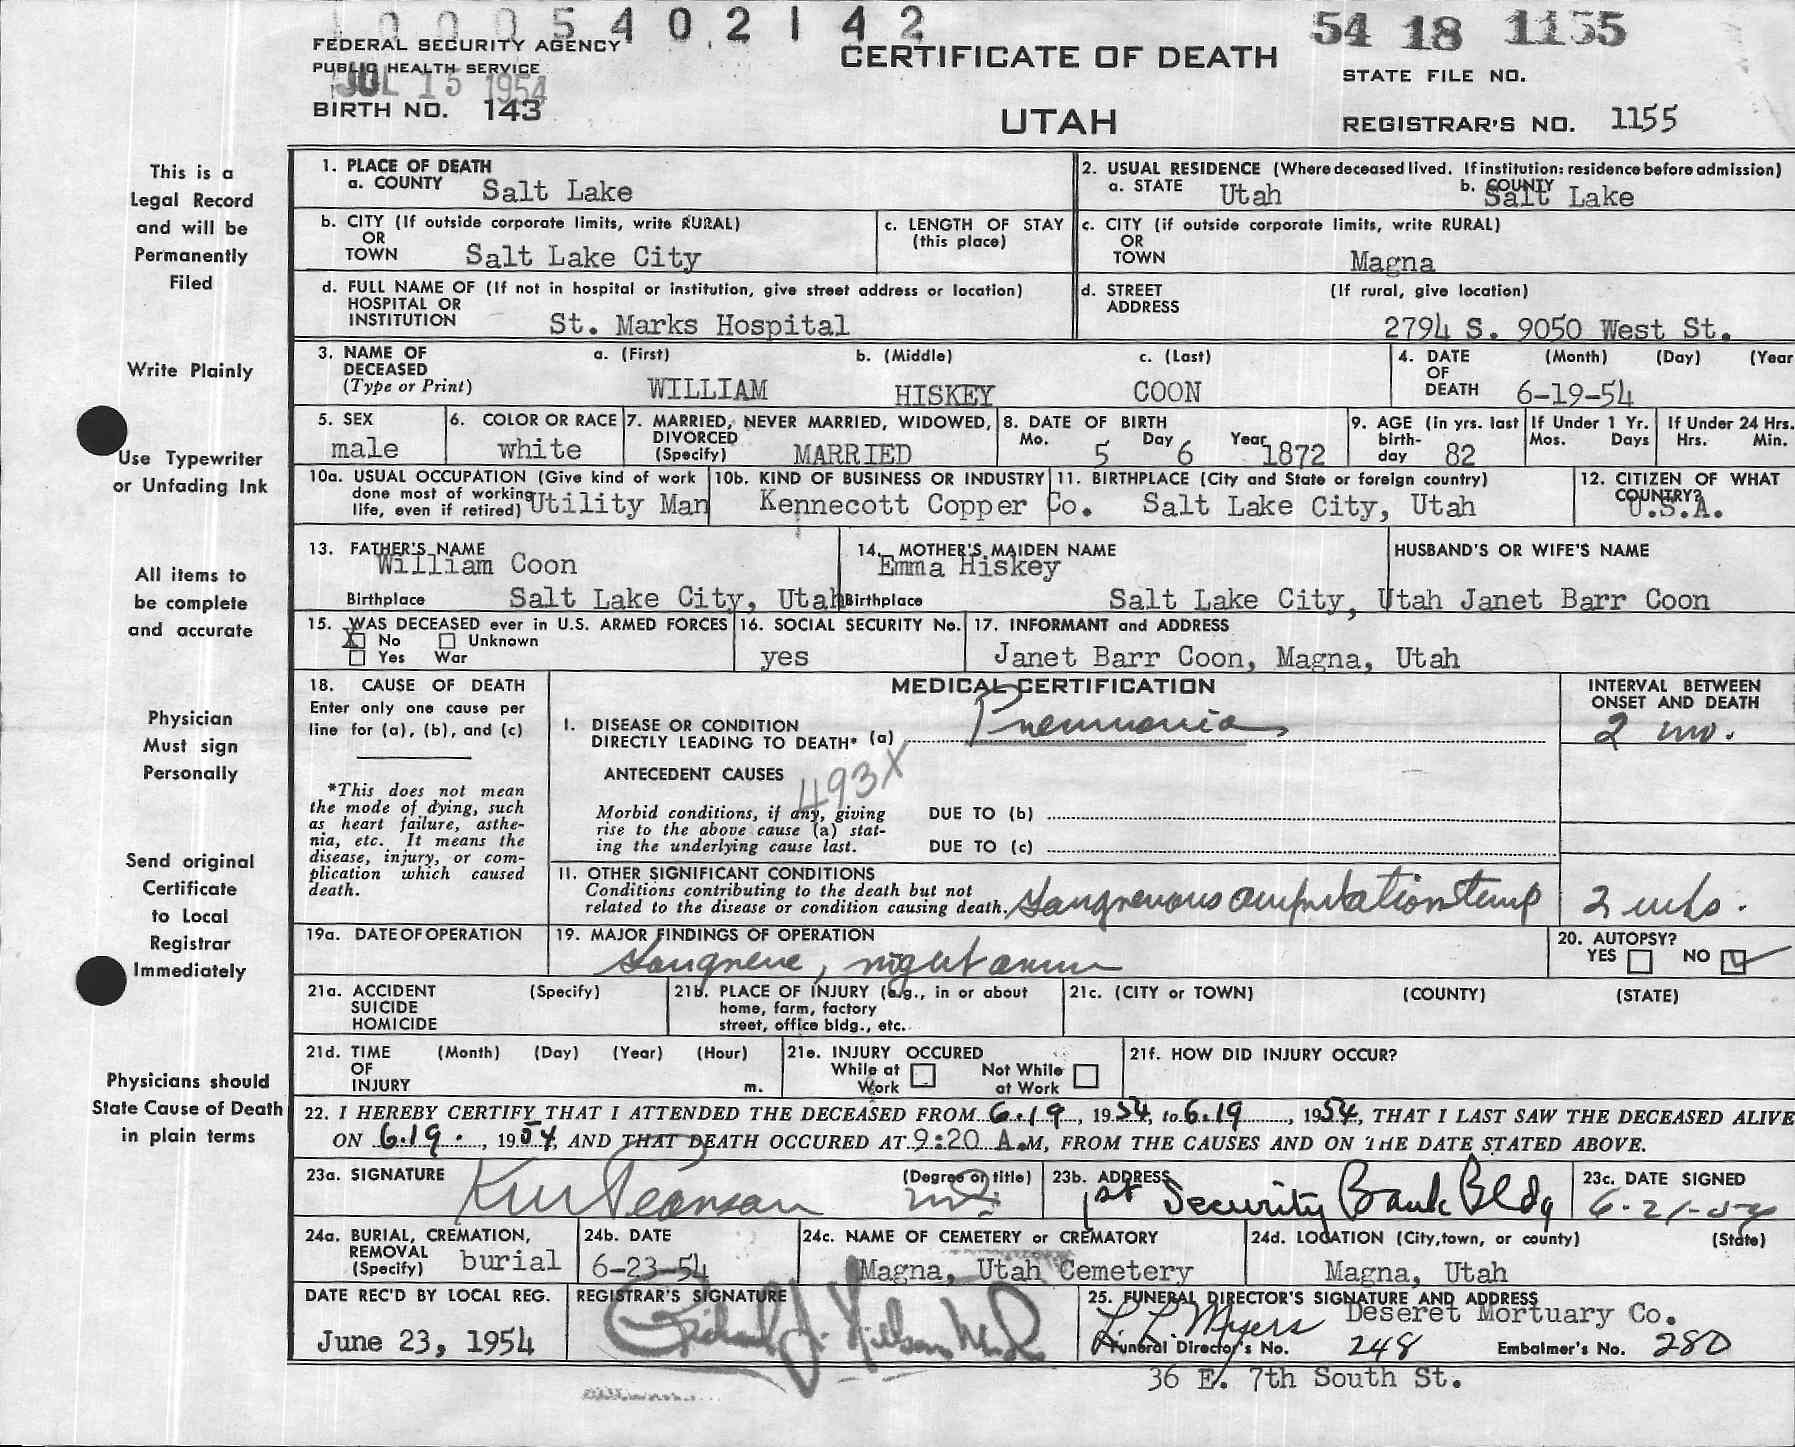 10005402142
54 18 1155
FEDERAL SECURITY AGENCY
PUBLIC HEALTH SERVICE
JUL 15 1954
BIRTH NO. 143
CERTIFICATE OF DEATH
UTAH
STATE FILE NO.
REGISTRAR'S NO. 1155
This is a
Legal Record
and will be
Permanently
Filed
Write Plainly
Use Typewriter
or Unfading Ink
All items to
be complete
and accurate
Physician
Must sign
Personally
Send original
Certificate
to Local
Registrar
Immediately
Physicians should
State Cause of Death
in plain terms
1. PLACE OF DEATH
a. COUNTY Salt Lake
2. USUAL RESIDENCE (Where deceased lived. If institution: residence before admission)
a. STATE Utah b. COUNTY Salt Lake
b. CITY (If outside corporate limits, write RURAL)
OR
TOWN Salt Lake City
c. LENGTH OF STAY
(this place)
c. CITY (if outside corporate limits, write RURAL)
OR
TOWN Magna
d. FULL NAME OF (If not in hospital or institution, give street address or location)
HOSPITAL OR
INSTITUTION St. Marks Hospital
d. STREET (If rural, give location)
ADDRESS
2794 S. 9050 West St.
3. NAME OF a. (First) b. (Middle) c. (Last)
DECEASED
(Type or Print) WILLIAM HISKEY COON
4. DATE (Month) (Day) (Year
OF
DEATH 6-19-54
5. SEX
male
6. COLOR OR RACE
white
7. MARRIED, NEVER MARRIED, WIDOWED,
DIVORCED
(Specify) MARRIED
8. DATE OF BIRTH
Mo. Day Year
5 6 1872
9. AGE (in yrs. last
birth-
day 82
If Under 1 Yr.
Mos. Days
If Under 24 Hrs.
Hrs. Min.
10a. USUAL OCCUPATION (Give kind of work
done most of working
life, even if retired) Utility Man
10b. KIND OF BUSINESS OR INDUSTRY
Kennecott Copper Co.
11. BIRTHPLACE (City and State or foreign country)
Salt Lake City, Utah
12. CITIZEN OF WHAT
COUNTRY?
U.S.A.
13. FATHER'S NAME
William Coon
Birthplace Salt Lake City, Utah
14. MOTHER'S MAIDEN NAME
Emma Hiskey
Birthplace Salt Lake City, Utah
HUSBAND'S OR WIFE'S NAME
Janet Barr Coon
15. WAS DECEASED ever in U.S. ARMED FORCES
X No Unknown
Yes War
16. SOCIAL SECURITY No.
yes
17. INFORMANT and ADDRESS
Janet Barr Coon, Magna, Utah
18. CAUSE OF DEATH
Enter only one cause per
line for (a), (b), and (c)
*This does not mean
the mode of dying, such
as heart failure, asthe-
nia, etc. It means the
disease, injury, or com-
plication which caused
death.
MEDICAL CERTIFICATION
INTERVAL BETWEEN
ONSET AND DEATH
I. DISEASE OR CONDITION
DIRECTLY LEADING TO DEATH* (a) Pneumonia 2 mo.
ANTECEDENT CAUSES
493X
Morbid conditions, if any, giving
rise to the above cause (a) stat-
ing the underlying cause last.
DUE TO (b)
DUE TO (c)
II. OTHER SIGNIFICANT CONDITIONS
Conditions contributing to the death but not
related to the disease or condition causing death. Gangrenous amputation stump 2 wks.
19a. DATE OF OPERATION
19. MAJOR FINDINGS OF OPERATION
Gangrene, right
20. AUTOPSY?
YES NO ✓
21a. ACCIDENT (Specify)
SUICIDE
HOMICIDE
21b. PLACE OF INJURY (e.g., in or about
home, farm, factory
street, office bldg., etc.
21c. (CITY or TOWN) (COUNTY) (STATE)
21d. TIME (Month) (Day) (Year) (Hour)
OF
INJURY m.
21e. INJURY OCCURED
While at Not While
Work at Work
21f. HOW DID INJURY OCCUR?
22. I HEREBY CERTIFY THAT I ATTENDED THE DECEASED FROM 6.19, 1954, to 6.19, 1954, THAT I LAST SAW THE DECEASED ALIVE
ON 6.19., 1954, AND THAT DEATH OCCURED AT 9:20 A.M, FROM THE CAUSES AND ON THE DATE STATED ABOVE.
23a. SIGNATURE (Degree or title)
MD
23b. ADDRESS
1st Security Bank Bldg
23c. DATE SIGNED
6-21-54
24a. BURIAL, CREMATION,
REMOVAL
(Specify) burial
24b. DATE
6-23-54
24c. NAME OF CEMETERY or CREMATORY
Magna, Utah Cemetery
24d. LOCATION (City, town, or county) (State)
Magna, Utah
DATE REC'D BY LOCAL REG.
June 23, 1954
REGISTRAR'S SIGNATURE
25. FUNERAL DIRECTOR'S SIGNATURE AND ADDRESS
L. L. Myers Deseret Mortuary Co.
Funeral Director's No. 248 Embalmer's No. 280
36 E. 7th South St.